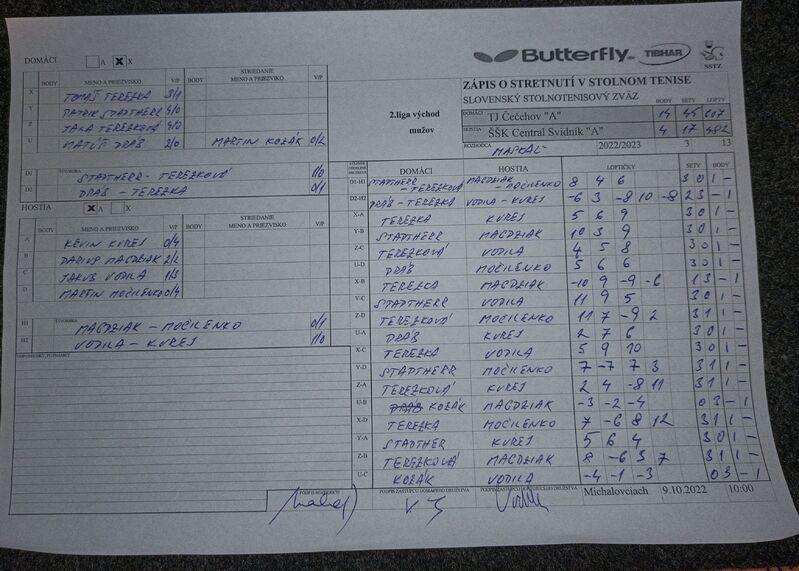 DOMÁCI A X X
Butterfly TIBHAR SSTZ
BODY MENO A PRIEZVISKO V/P BODY STRIEDANIE MENO A PRIEZVISKO V/P
X TOMÁŠ TEREZKA 3/1
Y PATRIK STADTHERR 4/0
Z JANA TEREZKOVÁ 4/0
U MATÚŠ DRÁB 2/0 MARTIN KOZÁK 0/2
D1 ŠTVORHRA STADTHERR - TEREZKOVÁ 1/0
D2 DRÁB - TEREZKA 0/1
HOSTIA X A X
BODY MENO A PRIEZVISKO V/P BODY STRIEDANIE MENO A PRIEZVISKO V/P
A KEVIN KUREJ 0/4
B DARIUS MAGDZIAK 2/2
C JAKUB VODILA 1/3
D MARTIN MOČILENKO 0/4
H1 ŠTVORHRA MAGDZIAK - MOČILENKO 0/1
H2 VODILA - KUREJ 1/0
PRIPOMIENKY, POZNÁMKY
ZÁPIS O STRETNUTÍ V STOLNOM TENISE
SLOVENSKÝ STOLNOTENISOVÝ ZVÄZ BODY SETY LOPTY
2.liga východ
mužov
DOMÁCI TJ Čečehov "A" 14 45 607
HOSTIA ŠŠK Central Svidník "A" 4 17 482
ROZHODCA 2022/2023 3 13
DOMÁCI HOSTIA LOPTIČKY SETY BODY
D1-H1 STADTHERR - TEREZKOVÁ MAGDZIAK - MOČILENKO 8 4 6 3 0 1 -
D2-H2 DRÁB - TEREZKA VODILA - KUREJ -6 3 -8 10 -8 2 3 - 1
X-A TEREZKA KUREJ 5 6 9 3 0 1 -
Y-B STADTHERR MAGDZIAK 10 3 9 3 0 1 -
Z-C TEREZKOVÁ VODILA 4 5 8 3 0 1 -
U-D DRÁB MOČILENKO 5 6 6 3 0 1 -
X-B TEREZKA MAGDZIAK -10 9 -9 -6 1 3 - 1
Y-C STADTHERR VODILA 11 9 5 3 0 1 -
Z-D TEREZKOVÁ MOČILENKO 11 7 -9 2 3 1 1 -
U-A DRÁB KUREJ 2 7 6 3 0 1 -
X-C TEREZKA VODILA 5 9 10 3 0 1 -
Y-D STADTHERR MOČILENKO 7 -7 7 3 3 1 1 -
Z-A TEREZKOVÁ KUREJ 2 4 -8 11 3 1 1 -
U-B DRÁB KOZÁK MAGDZIAK -3 -2 -4 0 3 - 1
X-D TEREZKA MOČILENKO 7 -6 8 12 3 1 1 -
Y-A STADTHER KUREJ 5 6 4 3 0 1 -
Z-B TEREZKOVÁ MAGDZIAK 8 -6 3 7 3 1 1 -
U-C KOZÁK VODILA -4 -1 -3 0 3 - 1
PODPIS ROZHODCU PODPIS ZÁSTUPCU DOMÁCEHO DRUŽSTVA PODPIS ZÁSTUPCU HOSŤUJÚCEHO DRUŽSTVA Michalovciach 9.10.2022 10:00